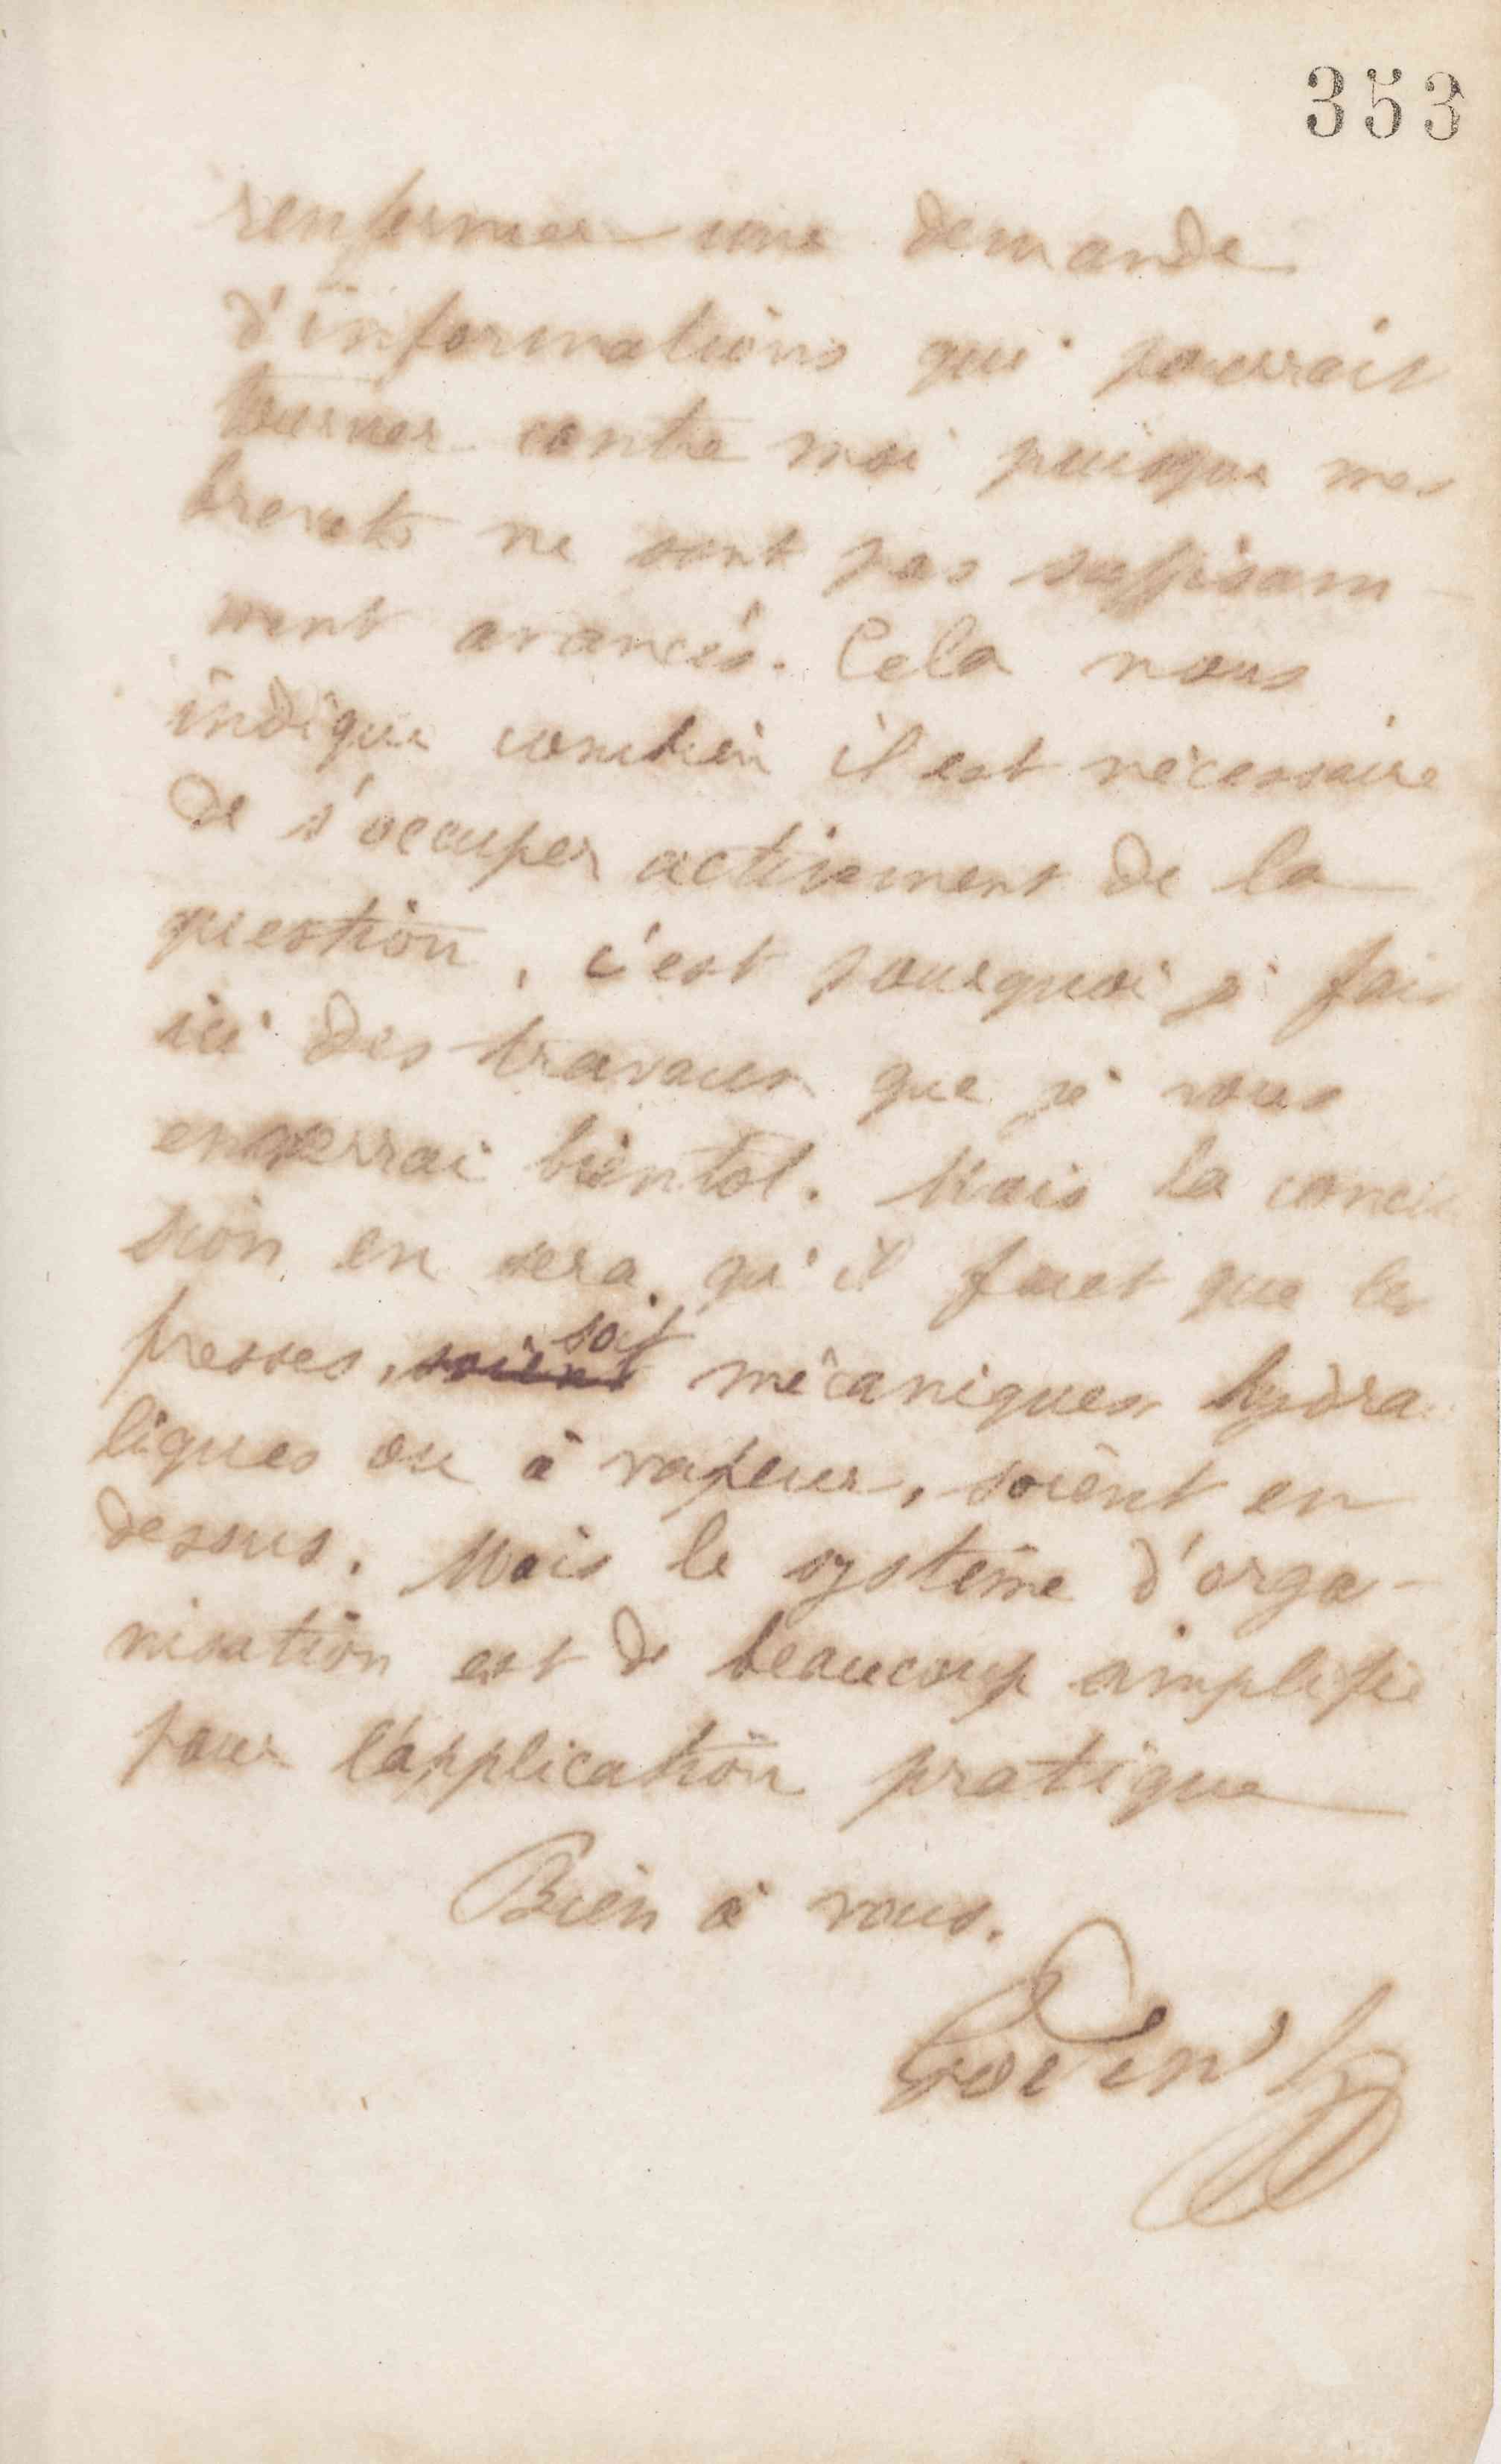 353
renfermer une demande
d'informations qui pourrait
tourner contre moi puisque mes
brevets ne sont pas suffisam-
ment avancés. Cela nous
indique combien il est nécessaire
de s'occuper activement de la
question, c'est pourquoi je fais
ici des travaux que je vous
enverrai bientot. Mais la conclu
sion en sera qu'il faut que les
presses, soient soit mécaniques hydra
liques ou à vapeur, soient en
dessus. Mais le système d'orga-
nisation est de beaucoup simplifié
pour l'application pratique
Bien à vous.
Godin